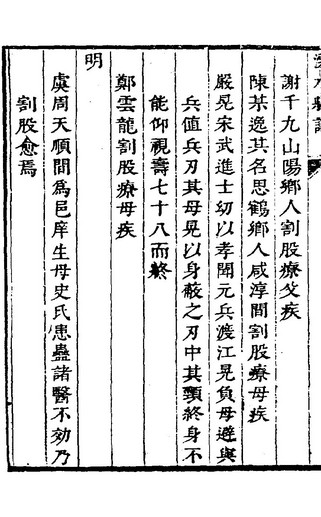 謝千九山陽鄉人割股療父疾
陳某逸其名思鶴鄉人咸淳間割股療母疾
嚴晃宋武進士幼以孝聞元兵渡江晃負母避與
兵值兵刃其母晃以身蔽之刃中其頸終身不
能仰視壽七十八而終
鄭雲龍割股療母疾
明
虞周天順間為邑庠生母史氏患蠱諸醫不効乃
割股愈焉